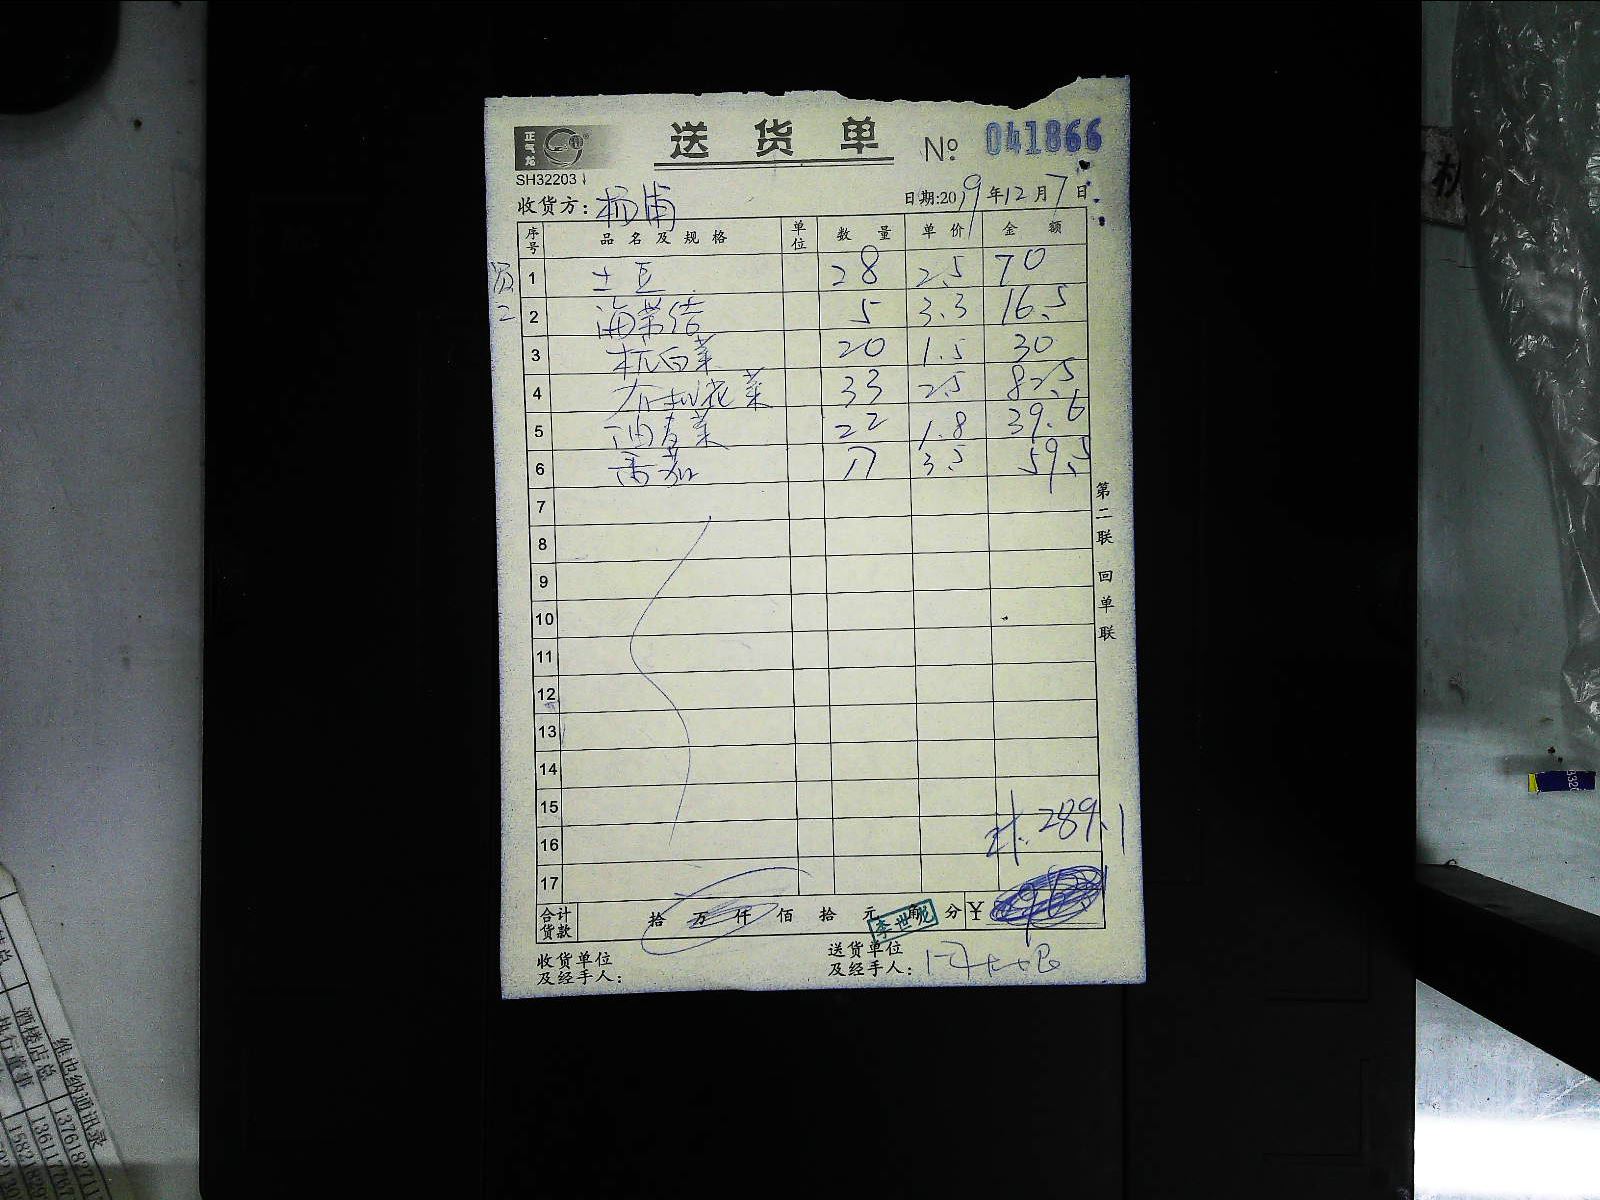 正气龙
送货单 № 041866
SH32203
收货方: 杨浦 日期:2019年12月7日
序号 品名及规格 单位 数量 单价 金额
1 土豆 28 2.5 70
2 海带结 5 3.3 16.5
3 杭白菜 20 1.5 30
4 有机花菜 33 2.5 82.5
5 油麦菜 22 1.8 39.6
6 番茄 17 3.5 59.5
7
8
9
10
11
12
13
14
15
16 计:289.1
17
合计货款 拾万仟佰拾元角分 ¥
李世龙
收货单位及经手人:
送货单位及经手人:
第二联 回单联
维也纳通讯录
酒楼店总
执行董事